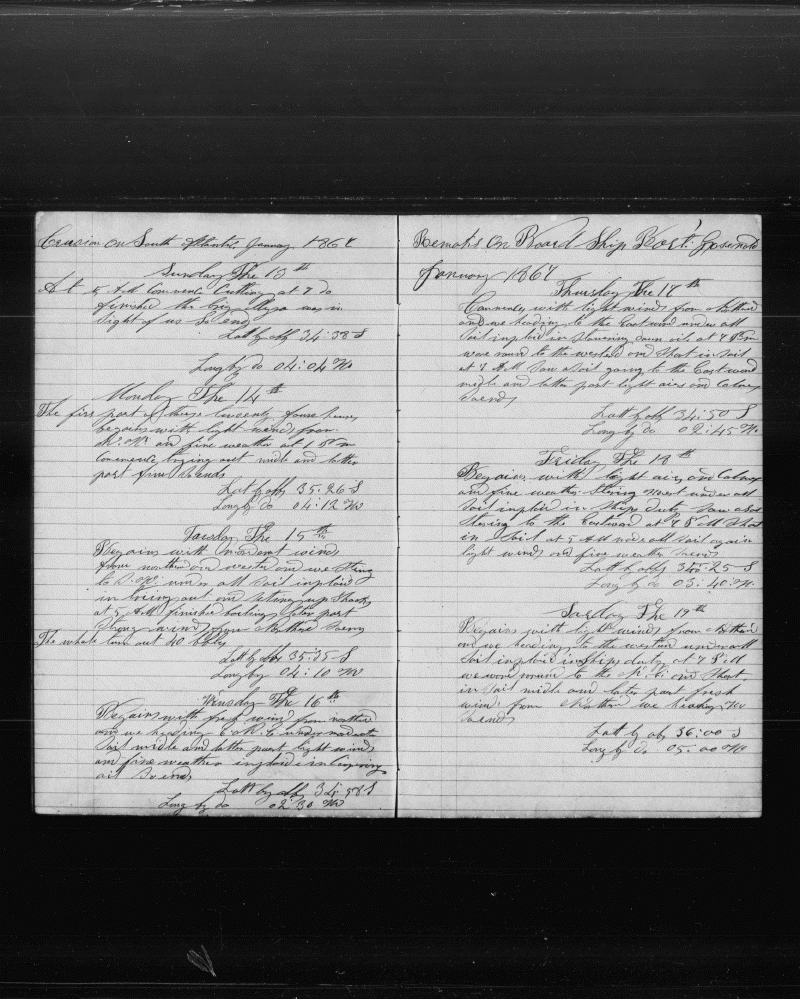 Crusion On South Atlantic January 1867
Sunday The 13th
At 5 AM Commence Cutting at 7 do
finished the
sight of us So ends
Latt by obs 34:38 S
Long by do 04:04 W
Monday The 14th
The first part of these twenty four hours
begains with light winds from
and fine weather at 1 P m
Commence boying out midle and latter
part fine So ends
Latt by obs 35:26 S
Long by do 04:12 W
Tuesday The 15th
Begains with moderent winds
from northen and western and we stering
to S. W. under all sail imploid
in boying out and
at 5 AM finished boiling later part
strong winds from
The whale turn out 40 bbls
Latt by obs 35:35 S
Long by 04:10 W
Wensday The 16th
Begains with fresh wind from northerd
and we heading under moderate
Sail midle and latter part light winds
and fine weather imploid in
oil So ends
Latt by obs 34:58 S
Long by do 02:30 W
Remarks On Board Ship
January 1867
Thursday The 17th
Comences with light winds from
and we heading to the Eastward under all
Sail imploid in down oil at 7 P m
wore round to the westerd and Short in sail
at 7 AM Saw a Sail going to the Eastward
midle and latter part light airs and Calmes
So ends
Latt by obs 34:50 S
Long by do 02:45 W
Friday The 18th
Begains with light airs and Calmes
and fine weather Stering West under all
Sail imploid in Ships duty Saw a Sail
Stering to the Eastward at 7 P M Short
in Sail at 5 AM made all Sail again
light winds and fine weather So ends
Latt by obs 34:25 S
Long by do 03:40 W.
Sarday The 19th
Begains with light winds from
and we heading to the westerd under all
Sail imploid in Ships duty at 7 P M
we wore round to the and Short
in Sail midle and later part fresh
winds from we heading
So ends
Latt by obs 36:00 S
Long by do 05:00 W